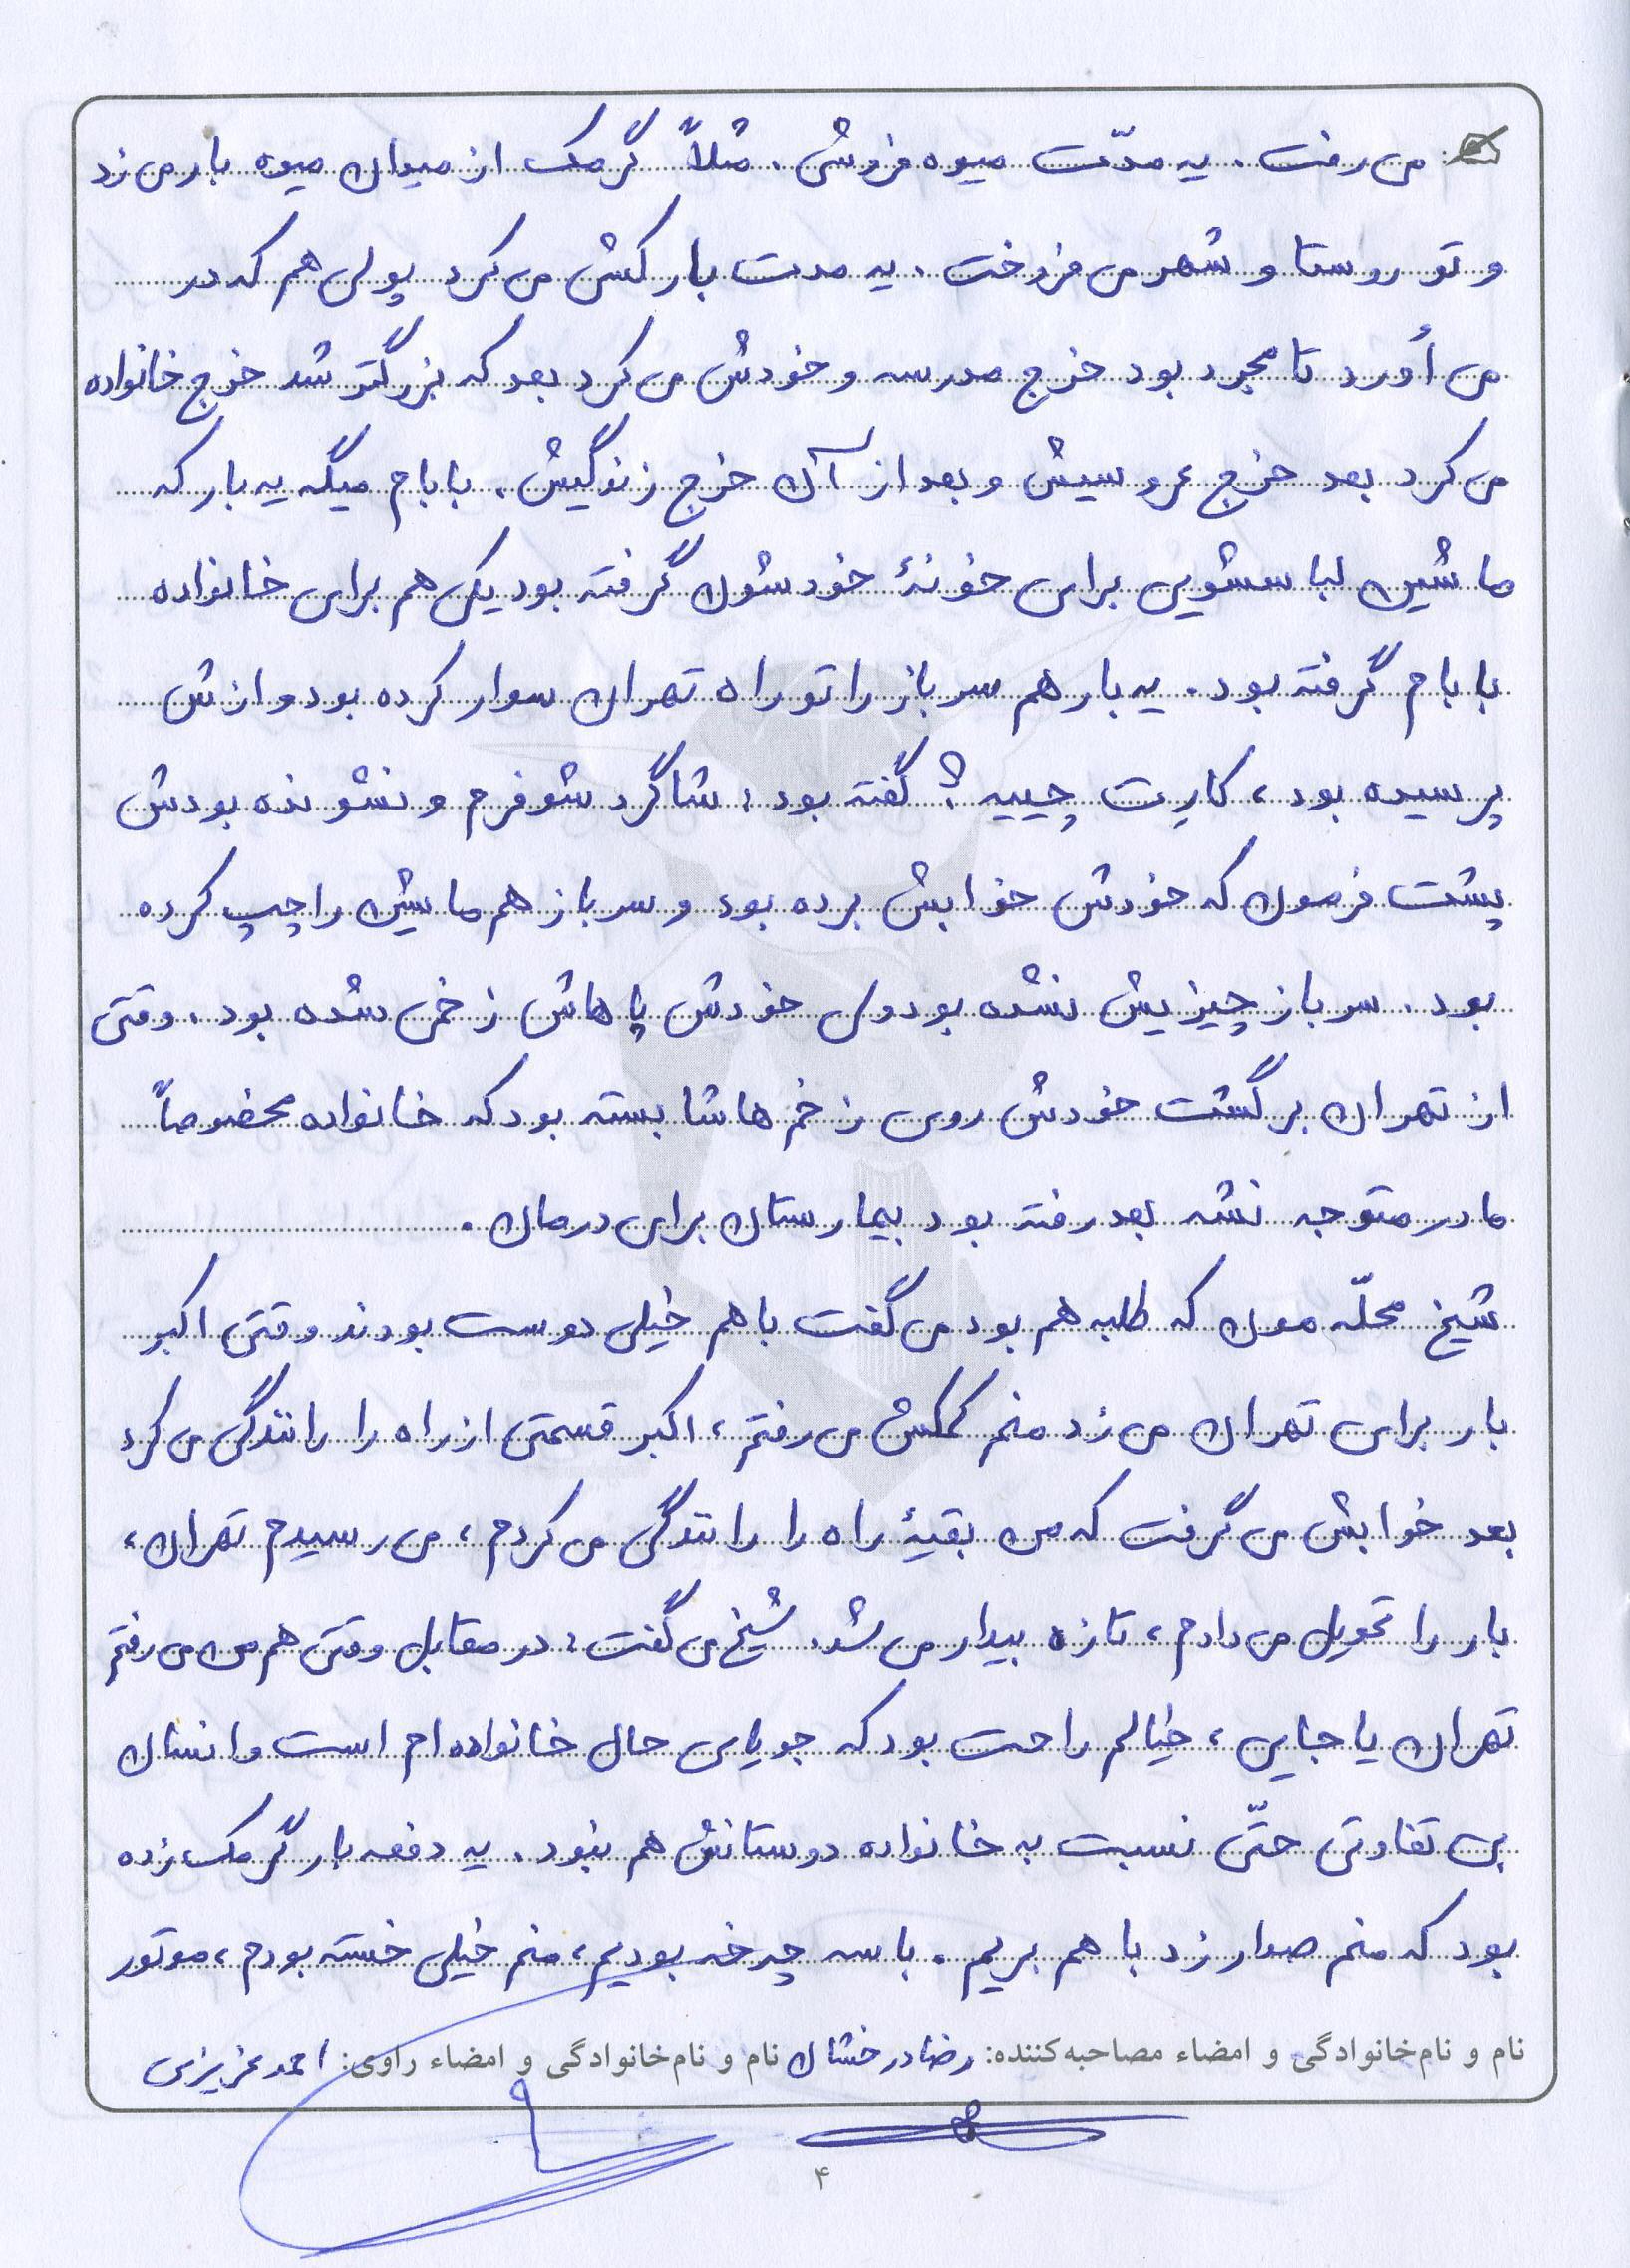 می رفت . یه مدّت میوه فروشی . مثلاً گرمک از میدان میوه بار می زد
و تو روستا و شهر می فروخت . یه مدت بارکشی می کرد پولی هم که در
می آورد تا مجرد بود خرج مدرسه و خودش می کرد بعد که بزرگتر شد خرج خانواده
می کرد بعد خرج عروسیش و بعد از آن خرج زندگیش . بابام میگه یه بار که
ماشین لباسشویی برای خونهٔ خودشون گرفته بود یکی هم برای خانواده
بابام گرفته بود . یه بار هم سرباز را تو راه تهران سوار کرده بود و ازش
پرسیده بود ، کارِت چییه ؟ گفته بود : شاگرد شوفرم و نشونده بودش
پشت فرمون که خودش خوابش برده بود و سرباز هم ماشین را چپ کرده
بود . سرباز چیزیش نشده بود ولی خودش پاهاش زخمی شده بود . وقتی
از تهران برگشت خودش روی زخم هاشا بسته بود که خانواده مخصوصاً
مادر متوجه نشه بعد رفته بود بیمارستان برای درمان .
شیخ محلّه مون که طلبه هم بود می گفت با هم خیلی دوست بودند وقتی اکبر
بار برای تهران می زد منم کمکش می رفتم ، اکبر قسمتی از راه را رانندگی می کرد
بعد خوابش می گرفت که من بقیهٔ راه را رانندگی می کردم ، می رسیدم تهران ،
بار را تحویل می دادم ، تازه بیدار می شد . شیخ می گفت : در مقابل وقتی هم من می رفتم
تهران یا جایی ، خیالم راحت بود که جویای حال خانواده ام است و انسان
بی تفاوتی حتّی نسبت به خانواده دوستانش هم نبود . یه دفعه بار گرمک زده
بود که منم صدا زد با هم بریم . با سه چرخه بودیم ، منم خیلی خسته بودم ، موتور
نام و نام‌خانوادگی و امضاء مصاحبه‌کننده: رضا درخشان نام و نام‌خانوادگی و امضاء راوی: احمد عزیزی
۴